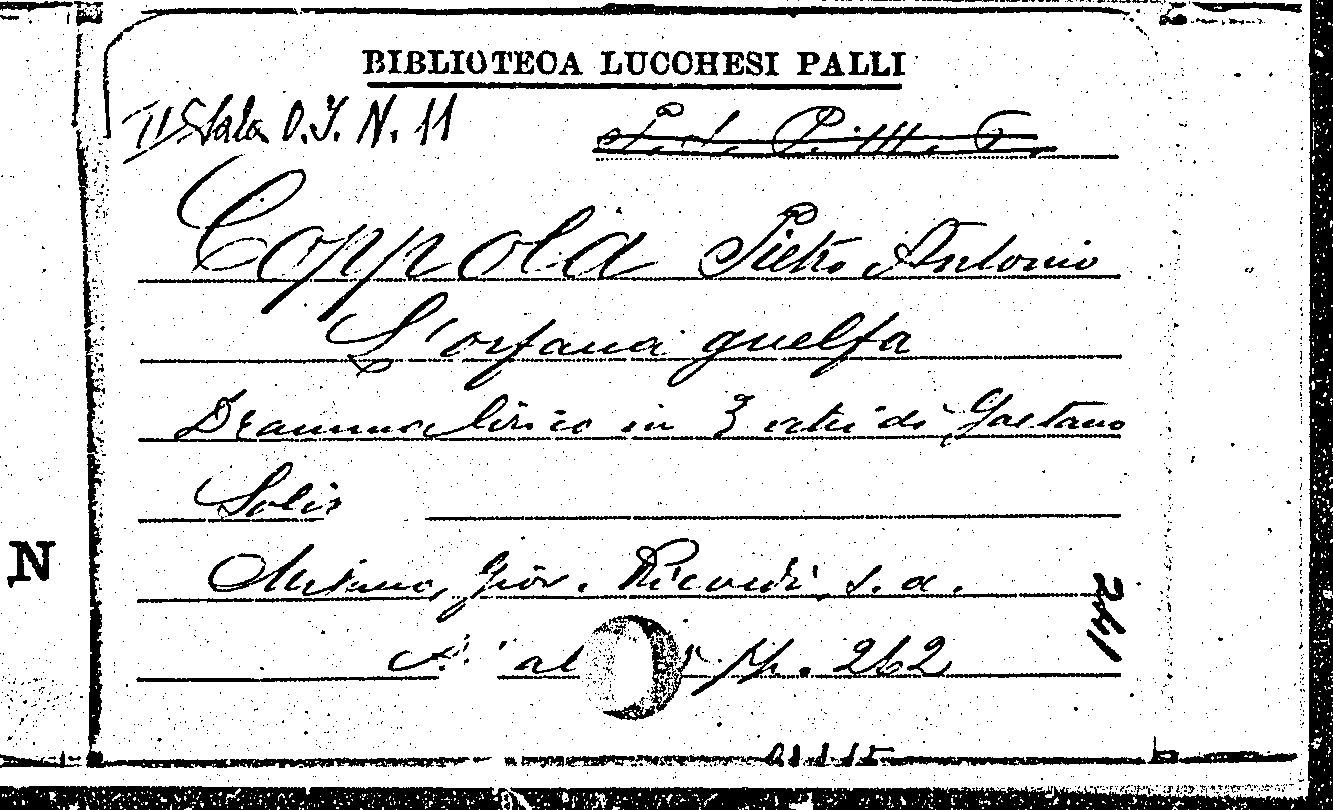 BIBLIOTECA LUCCHESI PALLI
II Sala O.I. N. 11
Coppola Pietro Antonio
L'orfana guelfa
Dramma lirico in 3 atti di Gaetano
Solis
Milano, Giov. Ricordi, s. a.
pp. 262
N